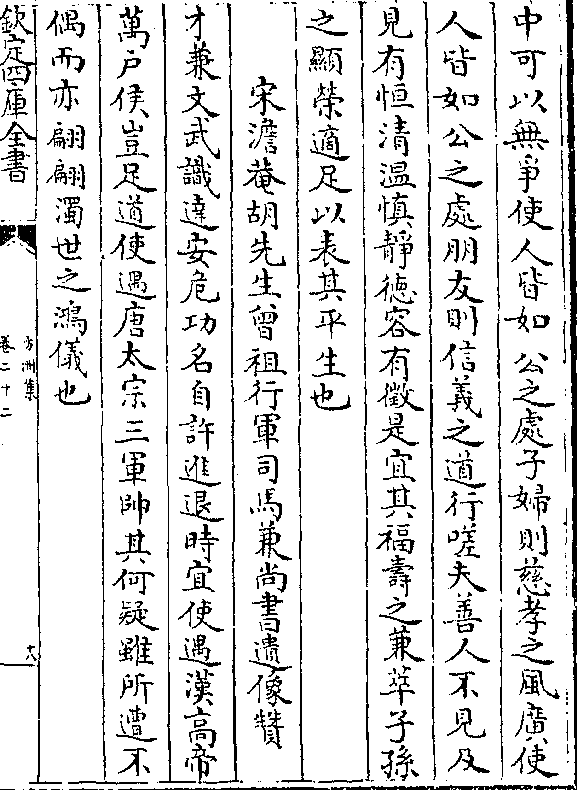 中可以無爭使人皆如公之處子婦則慈孝之風廣使
人皆如公之處朋友則信義之道行嗟夫善人不見及
見有恒清温慎静徳容有徵是宜其福壽之兼萃子孫
之顯榮適足以表其平生也
宋澹菴胡先生曾祖行軍司馬兼尚書遺像贊
才兼文武識達安危功名自許進退時宜使遇漢高帝
萬户侯豈足道使遇唐太宗三軍帥其何疑雖所遭不
偶而亦翩翩濁世之鴻儀也
欽定四庫全書
方洲集
卷二十二
六